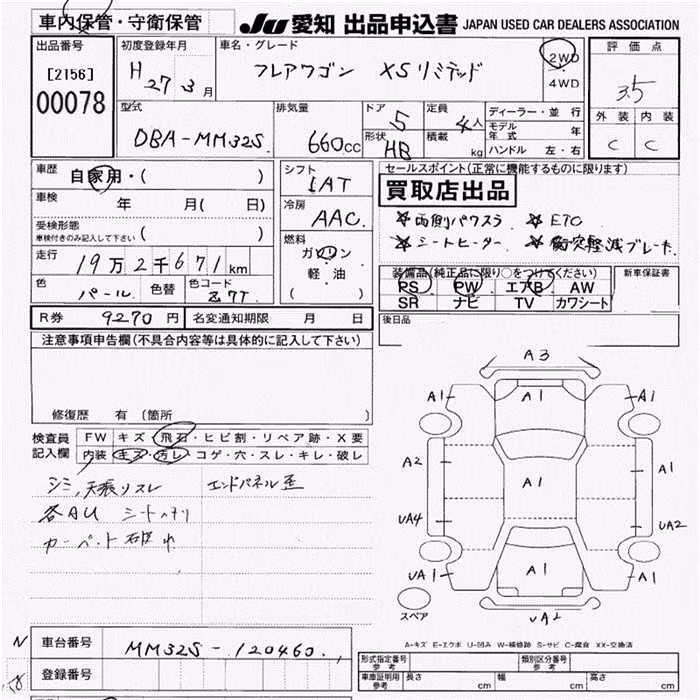 車内保管・守衛保管
JU 愛知 出品申込書 JAPAN USED CAR DEALERS ASSOCIATION
出品番号
[2156]
00078
初度登録年月
H 27 3月
車名・グレード
フレアワゴン XSリミテッド
2WD
4WD
評価点
3.5
外装 内装
C C
型式
DBA-MM32S.
排気量
660cc
ドア 5
形状 HB
定員 4人
積載 kg
ディーラー・並行
モデル年式 年
ハンドル 左・右
車歴
自家用・( )
車検 年 月( 日)
受検形態
車検付きのみ記入して下さい ( )
走行
19万2千671km
色 パール.
色替
色コード Z7T
シフト
IAT
冷房
AAC.
燃料
ガソリン
軽油
( )
セールスポイント(正常に機能するものに限ります)
買取店出品
☆両側パワスラ ☆ETC
☆シートヒーター. ☆衝突軽減ブレーキ
装備品(純正品に限り○をつけてください)
PS PW エアB AW
SR ナビ TV カワシート
新車保証書
後日品
R券 9270円
名変通知期限 月 日
注意事項申告欄(不具合内容等は具体的に記入して下さい)
修復歴 有 〔箇所 〕
検査員記入欄
FW キズ・飛石・ヒビ割・リペア跡・X要
内装 キズ・汚レ・コゲ・穴・スレ・キレ・破レ
シミ,天張リスレ エンドパネル歪
各AU シートヘタリ
カーペット破れ
A3
A1 A1 A1
A2 A1
UA4 UA2
UA1 A1 A1
UA2
スペア
A-キズ E-エクボ U-凹み W-補修跡 S-サビ C-腐食 XX-交換済
N
車台番号 MM32S-120460.
登録番号
形式指定番号 参考
類別区分番号 参考
車庫証明用 参考
長さ cm 幅 cm 高さ cm